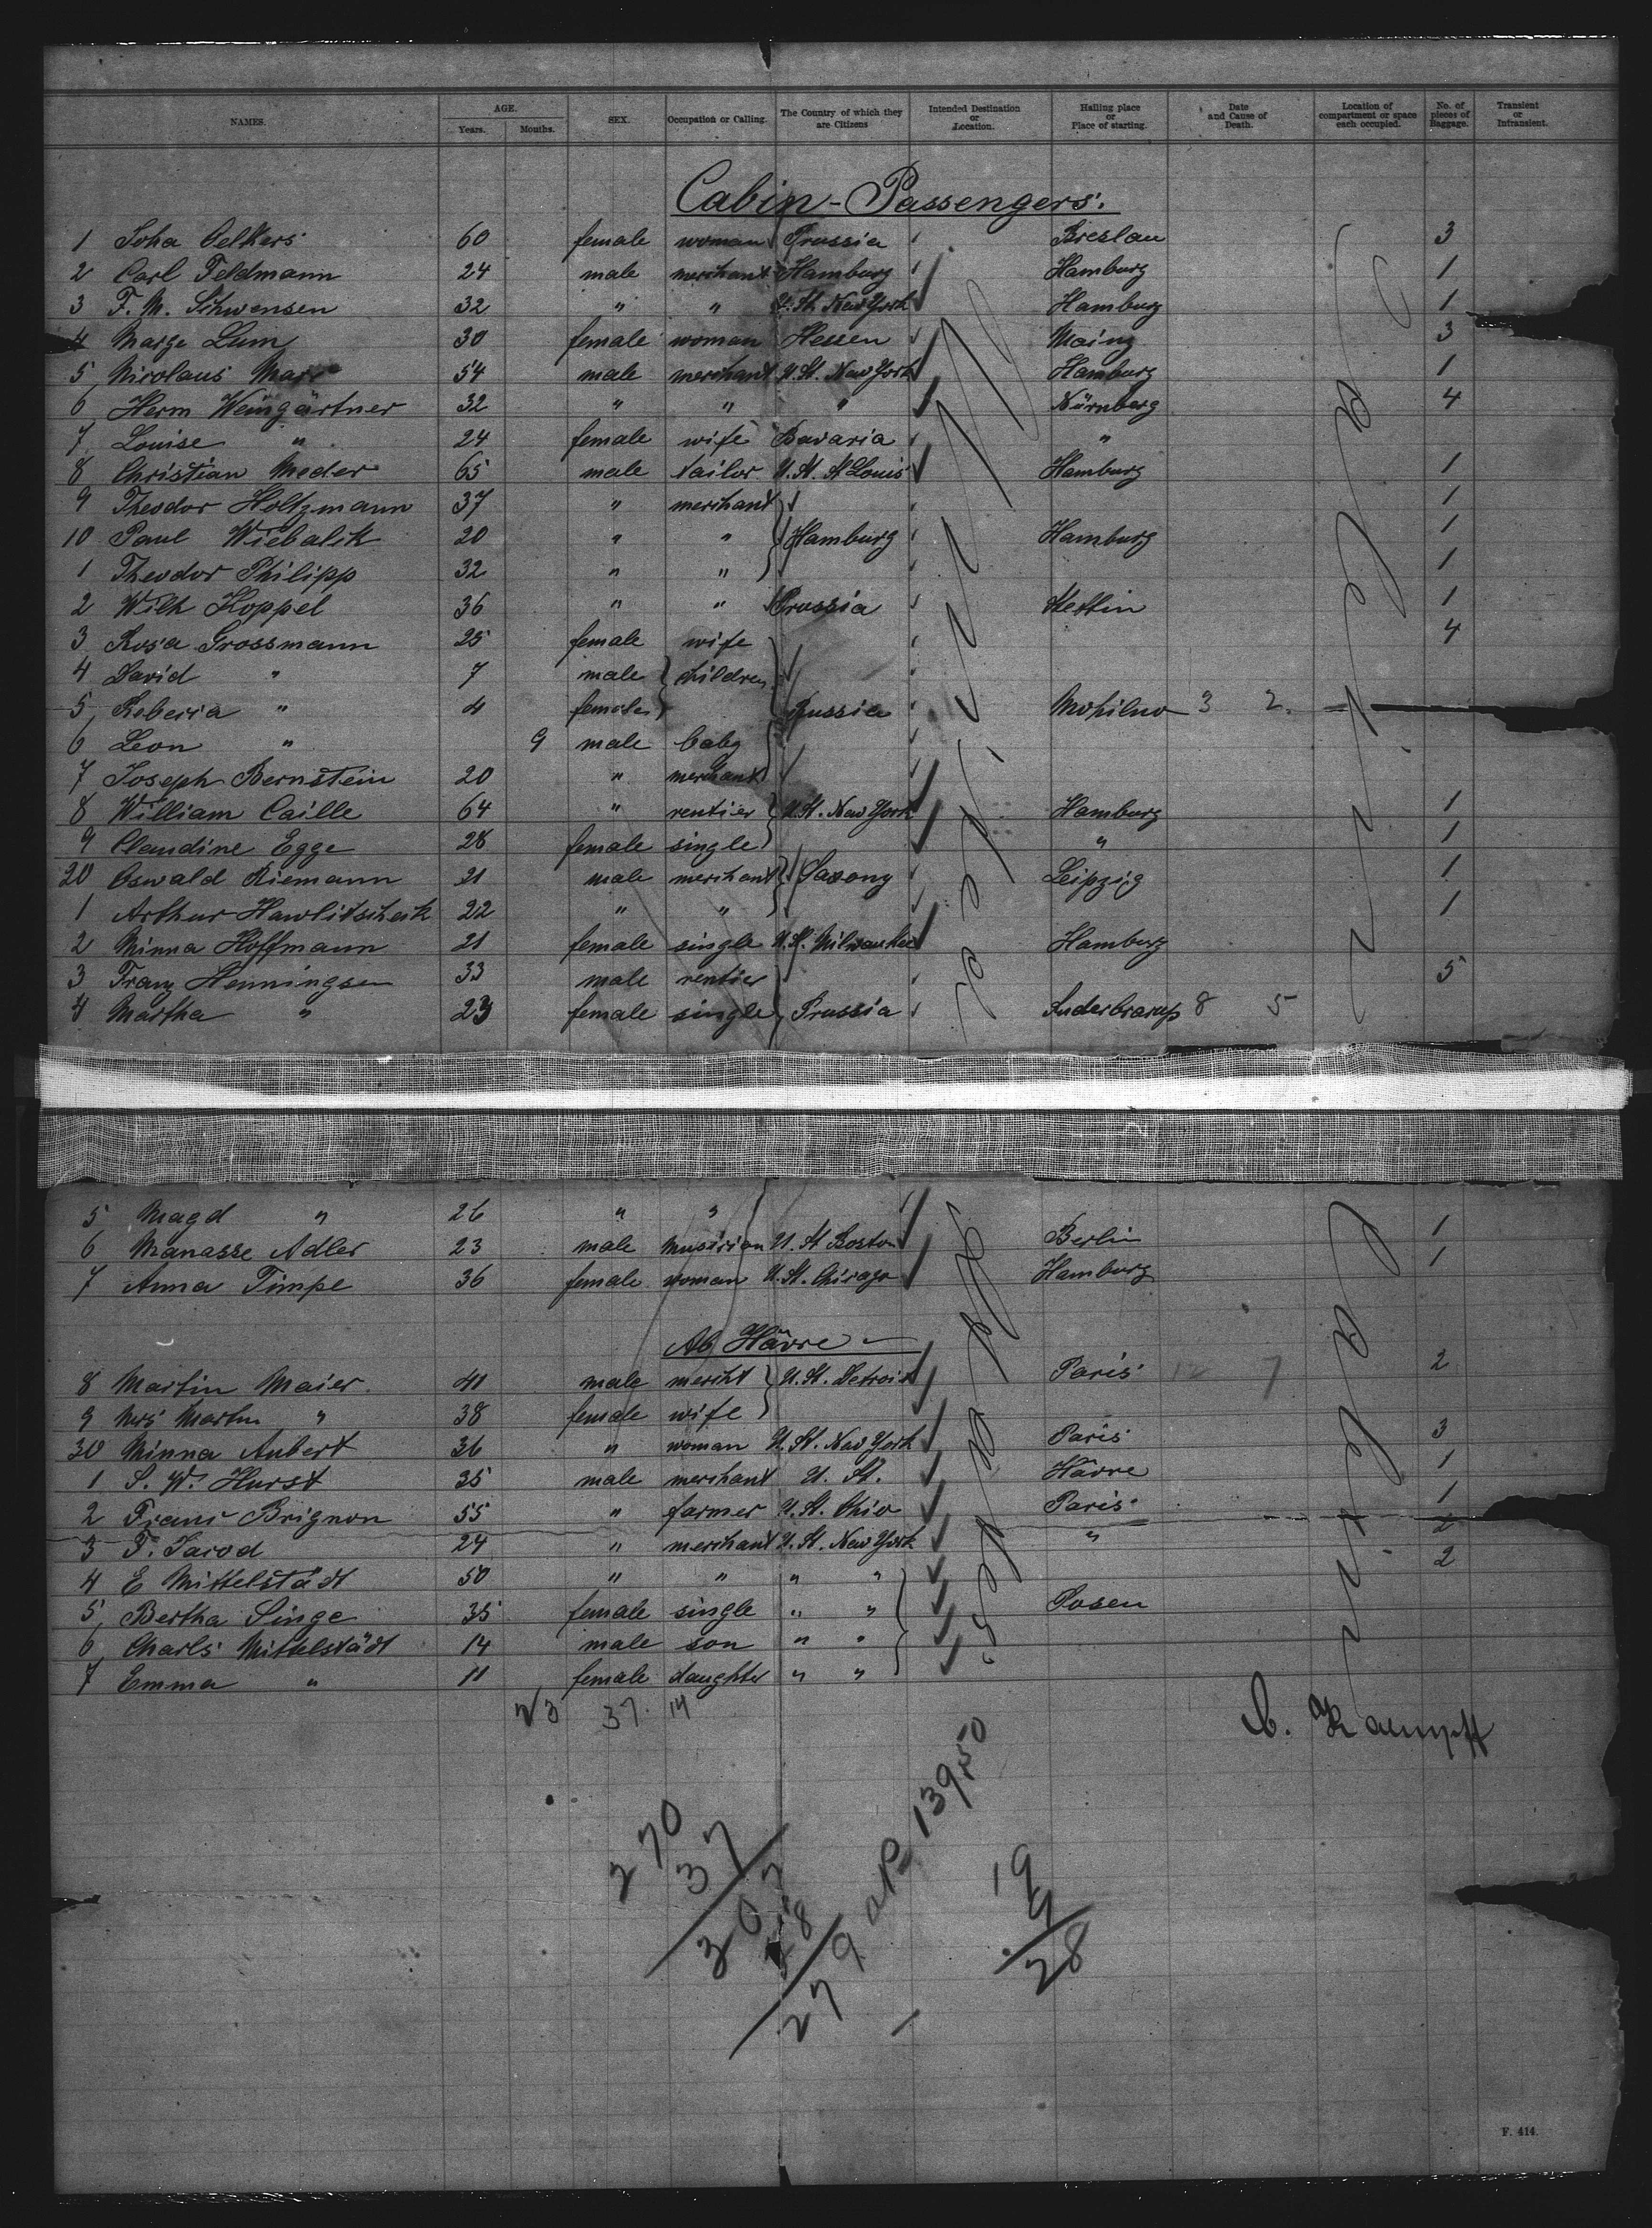 NAMES. AGE. Years. Months. SEX. Occupation or Calling. The Country of which they are Citizens Intended Destination or Location. Hailing place or Place of starting. Date and Cause of Death. Location of compartment or space each occupied. No. of pieces of Baggage. Transient or Intransient.
Cabin-Passengers.
1 Joha Oelkers 60 female woman Prussia Breslau 3
2 Carl Feldmann 24 male merchant Hamburg Hamburg 1
3 F. M. Schwensen 32 " " U. St. New York Hamburg 1
4 Marge Leim 30 female woman Hessen Mainz 3
5 Nicolaus Marr 54 male merchant U. St. New York Hamburg 1
6 Herm Weingärtner 32 " " " Nürnberg 4
7 Louise " 24 female wife Bavaria "
8 Christian Meder 65 male tailor U. St. St Louis Hamburg 1
9 Theodor Holtzmann 37 " merchant 1
10 Paul Wiebalik 20 " " Hamburg Hamburg 1
1 Theodor Philipp 32 " " 1
2 Wilh Koppel 36 " " Prussia Stettin 1
3 Rosa Grossmann 25 female wife 4
4 David " 7 male children
5 Rebecca " 4 female Russia Mohilno 3 2.
6 Leon " 9 male baby
7 Joseph Bernstein 20 " merchant
8 William Caille 64 " rentier U. St. New York Hamburg 1
9 Claudine Egge 28 female single " 1
20 Oswald Riemann 21 male merchant Saxony Leipzig 1
1 Arthur Hawlitscheck 22 " " 1
2 Minna Hoffmann 21 female single U. St. Milwaukee Hamburg
3 Franz Henningsen 33 male rentier 5
4 Martha " 23 female single Prussia Suderbrarup 8 5
5 Magd " 26 " "
6 Manasse Adler 23 male musician U. St Boston Berlin 1
7 Anna Timpe 36 female woman U. St. Chicago Hamburg 1
Ab Hâvre
8 Martin Maier 41 male mercht U. St. Detroit Paris 12 7 2
9 Mrs Martin " 38 female wife
30 Minna Aubert 36 " woman U. St. New York Paris 3
1 S. W. Hurst 35 male merchant U. St. Hâvre 1
2 Franc Brignon 55 " farmer U. St. Ohio Paris 1
3 F. Jarod 24 " merchant U. St. New York " 2
4 E Mittelstädt 50 " " " " 2
5 Bertha Singe 35 female single " " Posen
6 Charls Mittelstädt 14 male son " "
7 Emma " 11 female daughter " "
23 37. 14
C. Kaempff
270
37
307
28
279 a 50 139,50
19
9
28
F. 414.